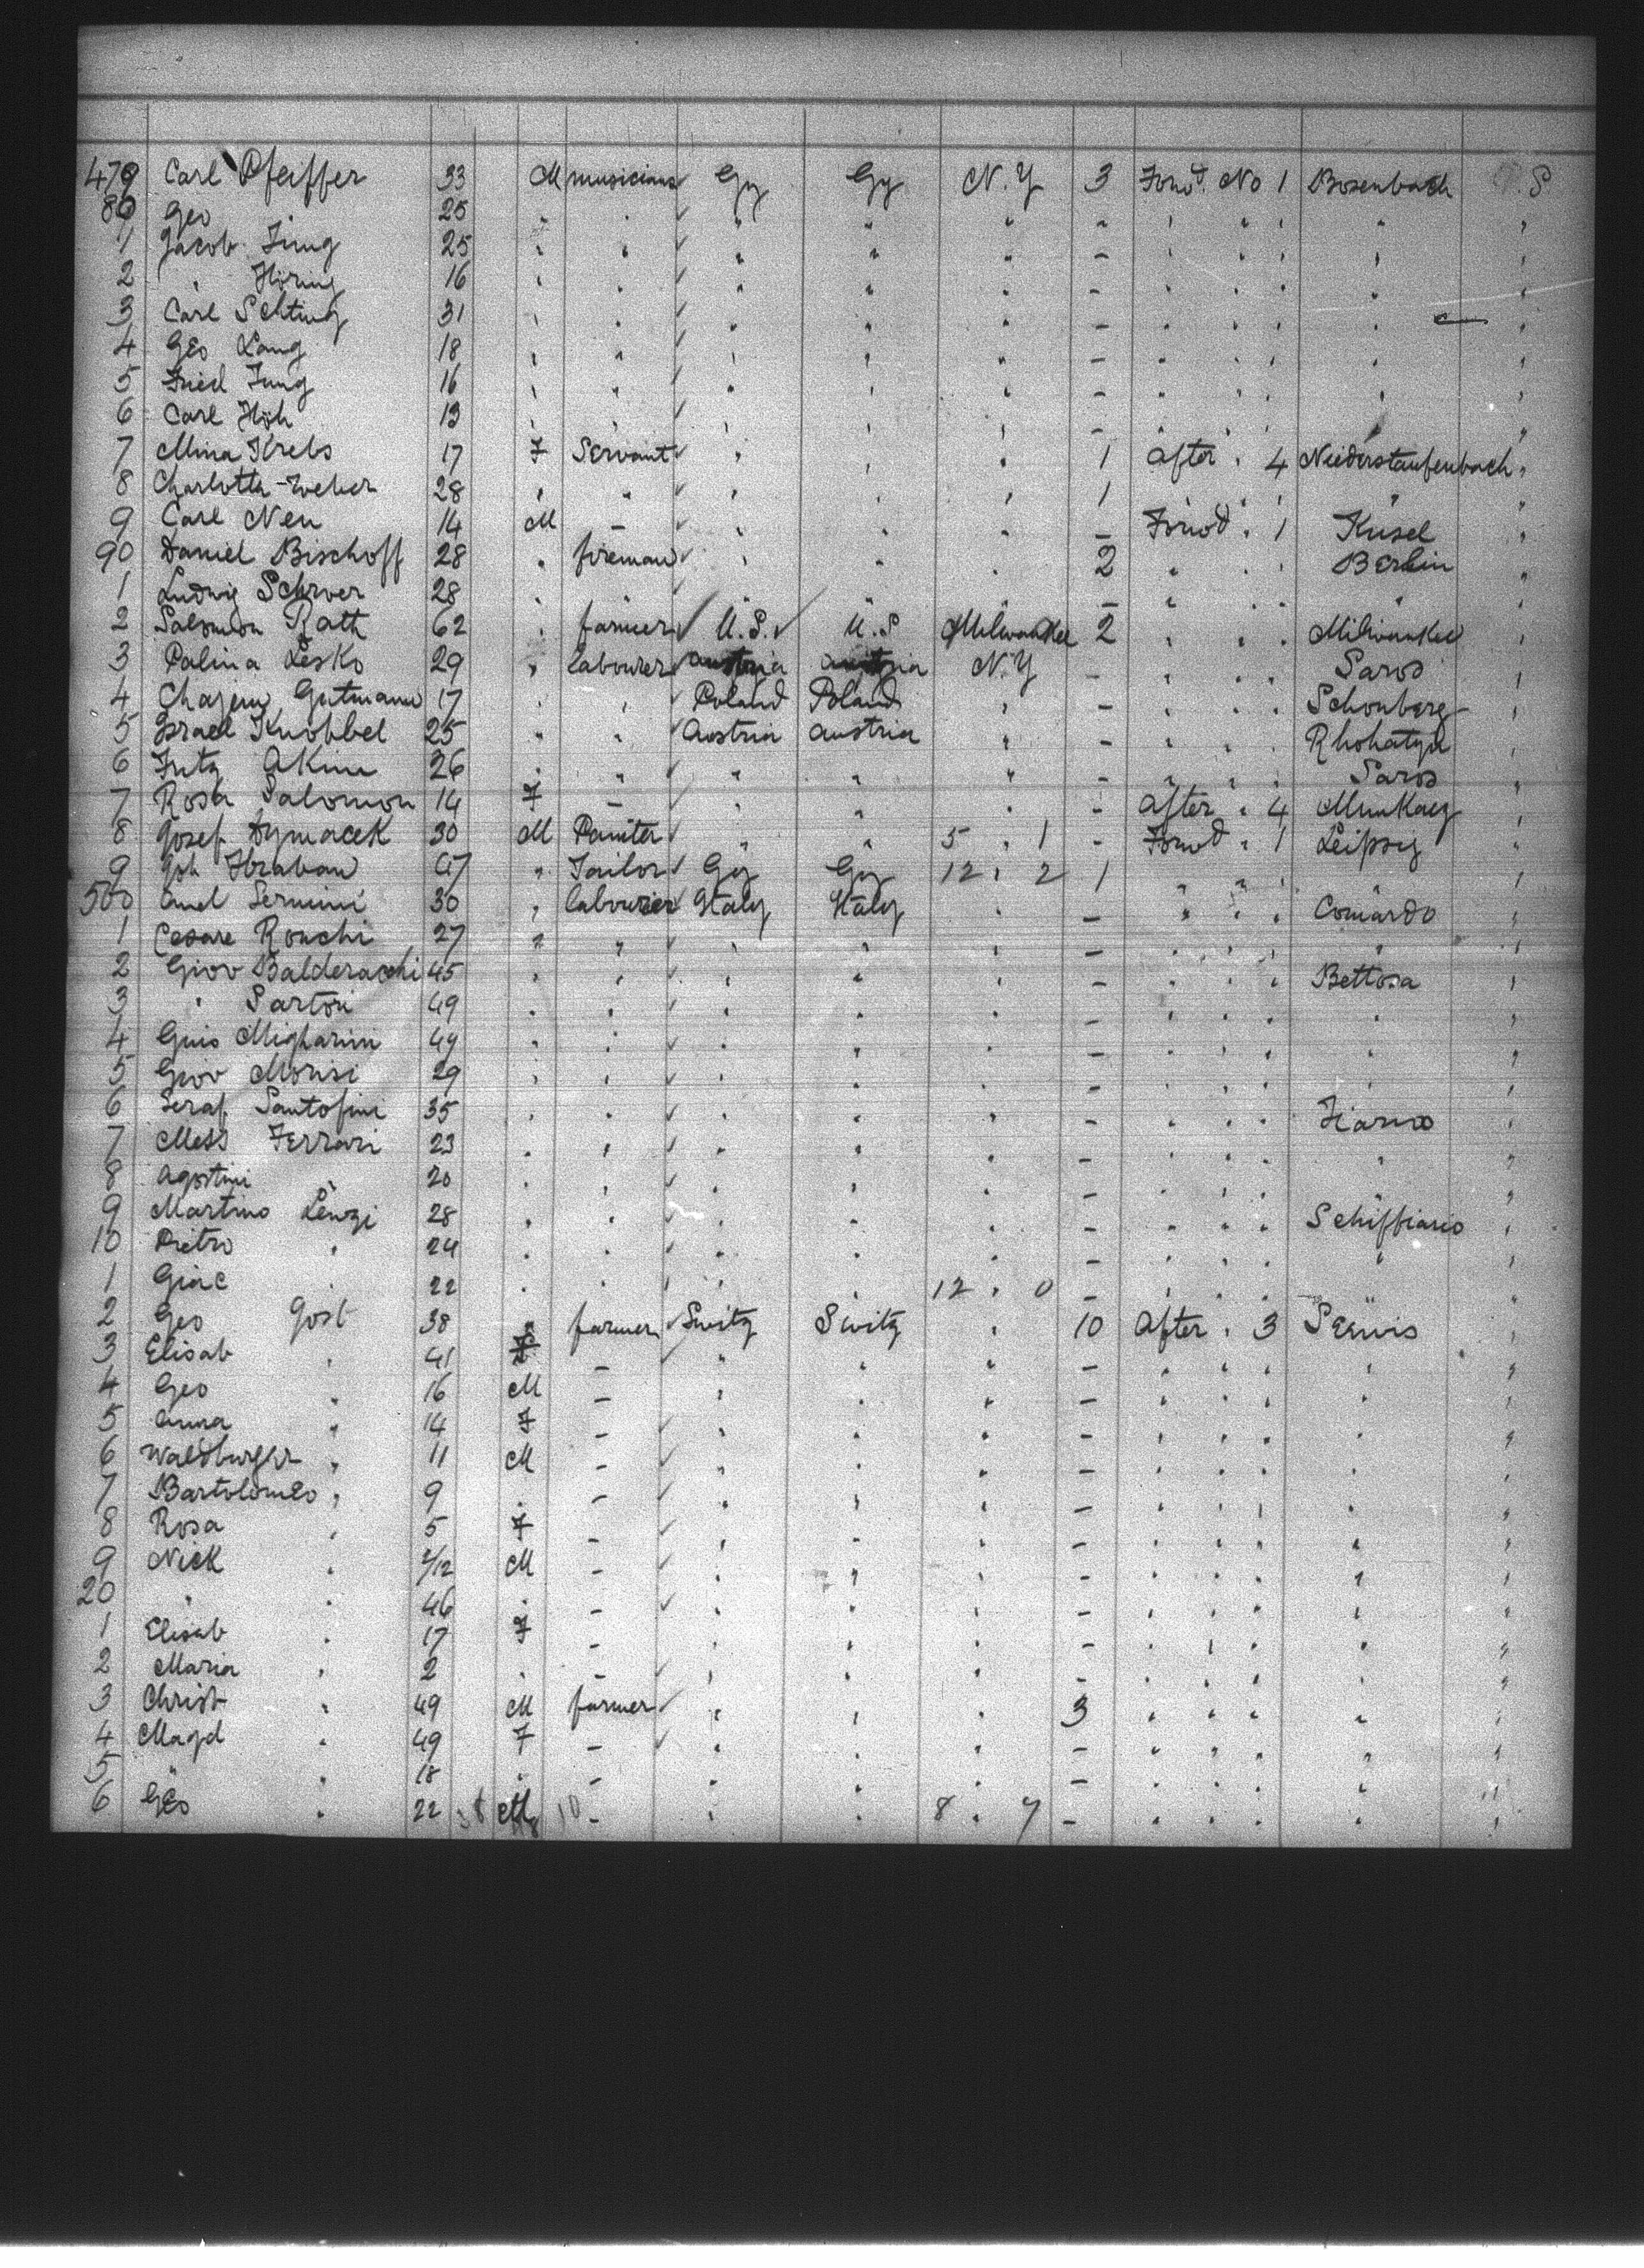 479 Carl Pfeiffer 33 M musician Gy Gy N.Y 3 Forwd. No 1 Bosenbach S
80 Geo 25 " " " " " - " " " " "
1 Jacob Jung 25 " " " " " - " " " " "
2 " Höring 16 " " " " " - " " " " "
3 Carl 31 " " " " " - " " " " "
4 Geo Lang 18 " " " " " - " " " " "
5 Fried Jung 16 " " " " " - " " " " "
6 Carl Höh 13 " " " " " - " " " " "
7 Mina Krebs 17 F Servant " " " 1 After " 4 Neiderstaufenbach "
8 Charlotta Weber 28 " " " " " 1 " " " " "
9 Carl Neu 14 M - " " " - Forwd " 1 Kusel "
90 Daniel Bischoff 28 " foreman " " " 2 " " " Berlin "
1 Ludwig 28 " " " " " - " " " " "
2 Salomon Rath 62 " farmer U.S. U.S Milwaukee 2 " " " Milwaukee "
3 Palina Lesko 29 " labourer Austria Austria N.Y - " " " Saros "
4 Gutmann 17 " " Poland Poland " - " " " Schonberg "
5 Israel Knobbel 25 " " Austria Austria " - " " " Rhohatyn "
6 Fritz Akim 26 " " " " " - " " " Saros "
7 Rosa Salomon 14 F - " " " - After " 4 Munkacz "
8 Josef 30 M Painter " " 5 " 1 - Forwd " 1 Leipzig "
9 Joh Hraban 47 " Tailor Gy Gy 12 " 2 1 " " " " "
500 Sermini 30 " labourer Italy Italy " - " " " Comardo "
1 Cesare Ronchi 27 " " " " " - " " " " "
2 Giov Balderacchi 45 " " " " " - " " " Bettosa "
3 " Sartori 49 " " " " " - " " " " "
4 Guis Migharini 49 " " " " " - " " " " "
5 Giov Morisi 29 " " " " " - " " " " "
6 Seraf Santofini 35 " " " " " - " " " "
7 Mass Ferrari 23 " " " " " - " " " " "
8 Agostini " 20 " " " " " - " " " " "
9 Martino Lenzi 28 " " " " " - " " " Schiffiario "
10 Pietro " 24 " " " " " - " " " " "
1 Giac " 22 " " " " 12 " 0 - " " " " "
2 Geo Jost 38 " farmer Switz Switz " 10 After " 3 Seewis "
3 Elisab " 41 F - " " " - " " " " "
4 Geo " 16 M - " " " - " " " " "
5 Anna " 14 F - " " " - " " " " "
6 Waldburger " 11 M - " " " - " " " " "
7 Bartolomeo " 9 " - " " " - " " " " "
8 Rosa " 5 F - " " " - " " " " "
9 Nick " /12 M - " " " - " " " " "
20 " " 46 " - " " " - " " " " "
1 Elisab " 17 F - " " " - " " " " "
2 Maria " 2 " - " " " - " " " " "
3 Christ " 49 M farmer " " " 3 " " " " "
4 Magd " 49 F - " " " - " " " " "
5 " " 18 " - " " " - " " " " "
6 Geo " 22 M - " " 8 " 7 - " " " " "